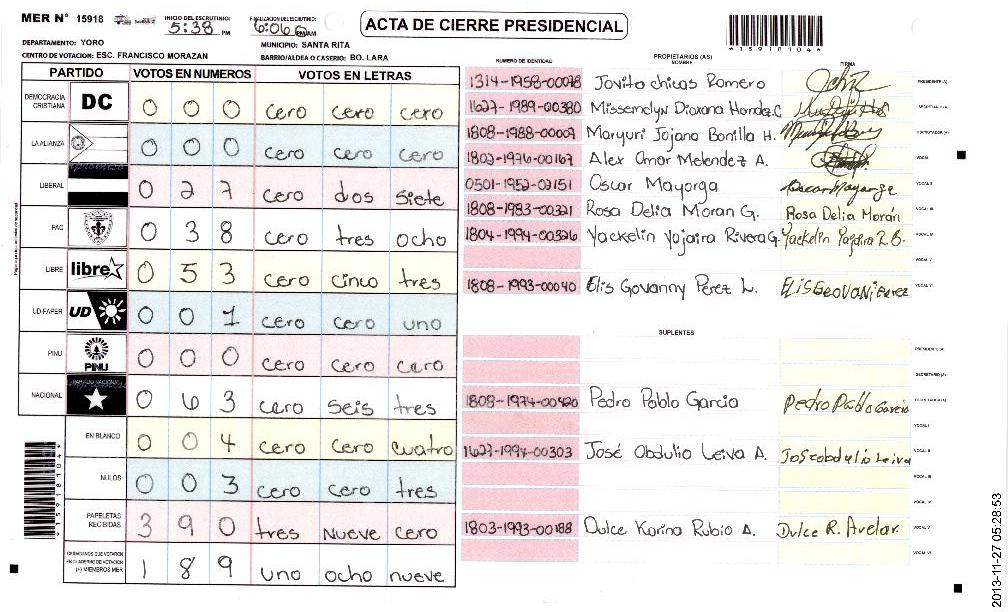 MER N° 15918
INICIO DEL ESCRUTINIO: 5:38 PM
FINALIZACION DEL ESCRUTINIO: 6:06 PM/AM
ACTA DE CIERRE PRESIDENCIAL
*15918104*
DEPARTAMENTO: YORO
MUNICIPIO: SANTA RITA
CENTRO DE VOTACION: ESC. FRANCISCO MORAZAN
BARRIO/ALDEA O CASERIO: BO. LARA
PARTIDO VOTOS EN NUMEROS VOTOS EN LETRAS
DEMOCRACIA CRISTIANA DC 0 0 0 cero cero cero
LA ALIANZA 0 0 0 cero cero cero
LIBERAL 0 2 7 cero dos siete
PAC 0 3 8 cero tres ocho
LIBRE libre 0 5 3 cero cinco tres
UD FAPER UD 0 0 1 cero cero uno
PINU PINU 0 0 0 cero cero cero
NACIONAL 0 6 3 cero seis tres
EN BLANCO 0 0 4 cero cero cuatro
NULOS 0 0 3 cero cero tres
PAPELETAS RECIBIDAS 3 9 0 tres nueve cero
CIUDADANOS QUE VOTARON EN CUADERNO DE VOTACION (+) MIEMBROS MER 1 8 9 uno ocho nueve
PROPIETARIOS (AS)
NUMERO DE IDENTIDAD NOMBRE FIRMA
1314-1958-00078 Jovita chicas Romero PRESIDENTE (A)
1627-1989-00380 Missemelyn Dioxana Hernandez C SECRETARIO (A)
1808-1988-00009 Maryuri Jojana Bonilla H. ESCRUTADOR (A)
1803-1976-00167 Alex Omar Melendez A. VOCAL I
0501-1952-02151 Oscar Mayorga Oscar Mayorga VOCAL II
1808-1983-00321 Rosa Delia Moran G. Rosa Delia Morán VOCAL III
1804-1994-00326 Yackelin Yojaira Rivera G. Yackelin Yojaira R.B. VOCAL IV
VOCAL V
1808-1993-00040 Elis Govanny Perez L. VOCAL VI
SUPLENTES
PRESIDENTE (A)
SECRETARIO (A)
1808-1974-00420 Pedro Pablo Garcia Pedro Pablo Garcia ESCRUTADOR (A)
VOCAL I
1627-1994-00303 José Obdulio Leiva A. Jose obdulio Leiva VOCAL II
VOCAL III
VOCAL IV
1803-1993-00188 Dulce Karina Rubio A. Dulce R. Avelar. VOCAL V
VOCAL VI
*15918104*
2013-11-27 05:28:53